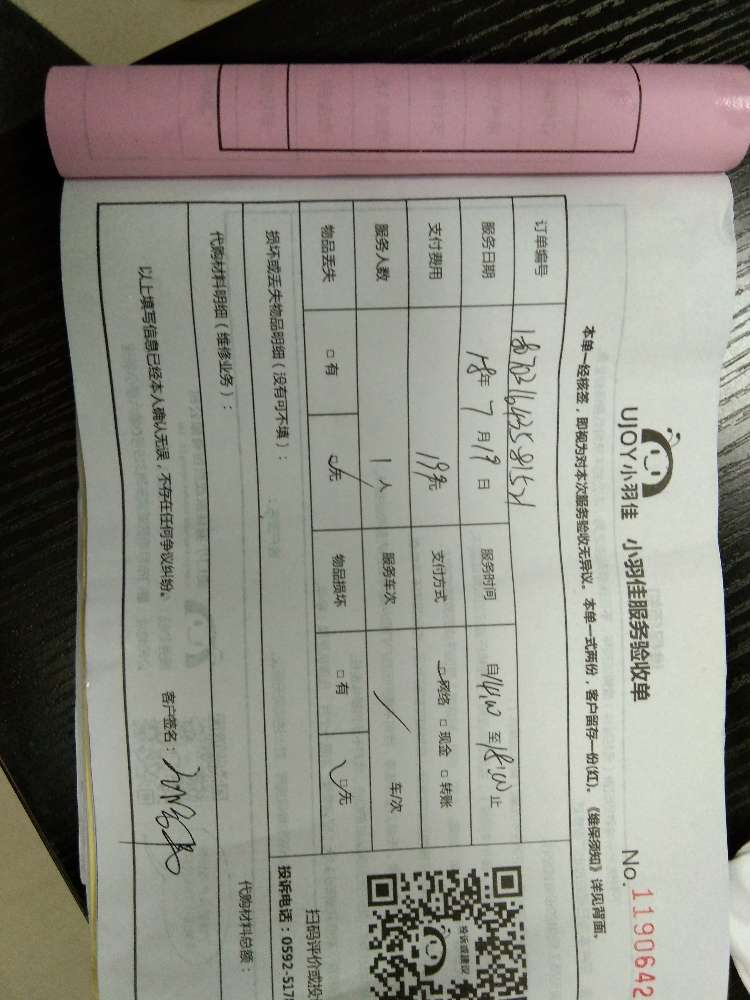 UJOY小羽佳 小羽佳服务验收单 No. 1190642
本单一经核签，即视为对本次服务验收无异议。本单一式两份，客户留存一份(红)。《维保须知》详见背面。
订单编号
服务日期 18年 7月19日 服务时间 自16:00 至18:00止
支付费用 199元 支付方式 □网络 □现金 □转账
服务人数 1人 服务车次 / 车/次
物品丢失 □有 □无 物品损坏 □有 □无
损坏或丢失物品明细（没有可不填）：
代购材料明细（维修业务）： 代购材料总额：
以上填写信息已经本人确认无误，不存在任何争议纠纷。 客户签名：
投诉或建议
扫码评价或投
投诉电话：0592-517